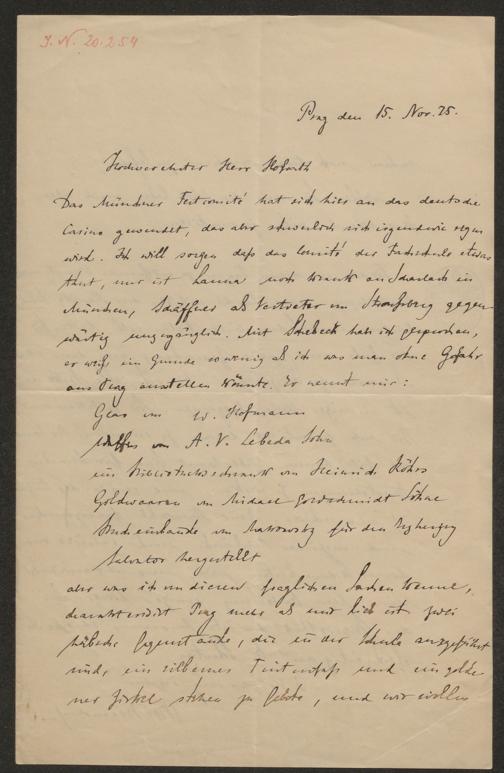 J. N. 20.254
Prag den 15. Nov. 75.
Hochverehrter Herr Hofrath
Das Münchner Festcomité hat sich hier an das deutsche
Casino gewendet, das aber schwerlich sich irgendwie regen
wird. Ich will sorgen daß das Comité der Fachschule etwas
thut, nur ist noch krank an Scharlach in
München, Schäffner als Vertreter von Straßburg gegen-
wärtig unzugänglich. Mit Schebeck hab ich gesprochen,
er weiß im Grunde so wenig als ich was man ohne Gefahr
aus Prag ausstellen könnte. Er nennt mir:
Glas von W. Hofmann
Waffen von A. V. Lebeda Sohn
ein Bibliotheksschrank von Heinrich Röhrs
Goldwaaren von Michael Goldschmidt Söhne
Bucheinbände von für den Erzherzog
Salvator hergestellt
aber was ich von diesen fraglichen Sachen kenne,
Prag mehr als mir lieb ist. Zwei
hübsche Gegenstände, die in der Schule ausgeführt
sind, ein silbernes Tintenfaß und ein golde-
ner Zirkel stehen zu Gebote, und wir wollen